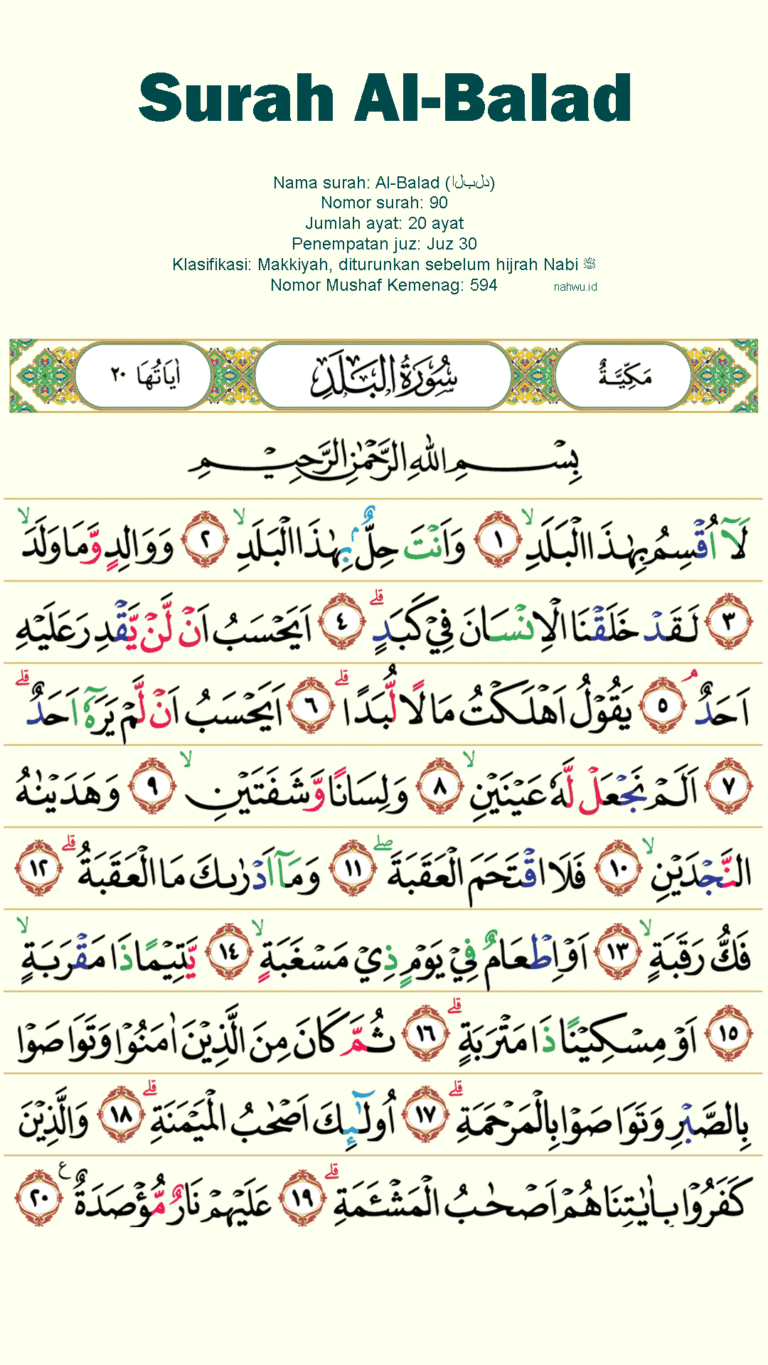 Surah Al-Balad
Nama surah: Al-Balad (البلد)
Nomor surah: 90
Jumlah ayat: 20 ayat
Penempatan juz: Juz 30
Klasifikasi: Makkiyah, diturunkan sebelum hijrah Nabi ﷺ
Nomor Mushaf Kemenag: 594 nahwu.id
مَكِّيَّةٌ سُوْرَةُ الْبَلَدِ اٰيَاتُهَا ٢٠
بِسْمِ اللّٰهِ الرَّحْمٰنِ الرَّحِيْمِ
لَآ اُقْسِمُ بِهٰذَا الْبَلَدِۙ ١ وَاَنْتَ حِلٌّۢ بِهٰذَا الْبَلَدِۙ ٢ وَوَالِدٍ وَّمَا وَلَدَۙ
٣ لَقَدْ خَلَقْنَا الْاِنْسَانَ فِيْ كَبَدٍۗ ٤ اَيَحْسَبُ اَنْ لَّنْ يَّقْدِرَ عَلَيْهِ
اَحَدٌۘ ٥ يَقُوْلُ اَهْلَكْتُ مَالًا لُّبَدًاۗ ٦ اَيَحْسَبُ اَنْ لَّمْ يَرَهٗٓ اَحَدٌۗ
٧ اَلَمْ نَجْعَلْ لَّهٗ عَيْنَيْنِۙ ٨ وَلِسَانًا وَّشَفَتَيْنِۙ ٩ وَهَدَيْنٰهُ
النَّجْدَيْنِۙ ١٠ فَلَا اقْتَحَمَ الْعَقَبَةَۖ ١١ وَمَآ اَدْرٰىكَ مَا الْعَقَبَةُۗ ١٢
فَكُّ رَقَبَةٍۙ ١٣ اَوْ اِطْعَامٌ فِيْ يَوْمٍ ذِيْ مَسْغَبَةٍۙ ١٤ يَّتِيْمًا ذَا مَقْرَبَةٍۙ
١٥ اَوْ مِسْكِيْنًا ذَا مَتْرَبَةٍۗ ١٦ ثُمَّ كَانَ مِنَ الَّذِيْنَ اٰمَنُوْا وَتَوَاصَوْا
بِالصَّبْرِ وَتَوَاصَوْا بِالْمَرْحَمَةِۗ ١٧ اُولٰۤىِٕكَ اَصْحٰبُ الْمَيْمَنَةِۗ ١٨ وَالَّذِيْنَ
كَفَرُوْا بِاٰيٰتِنَا هُمْ اَصْحٰبُ الْمَشْـَٔمَةِۗ ١٩ عَلَيْهِمْ نَارٌ مُّؤْصَدَةٌ ࣖ ٢٠